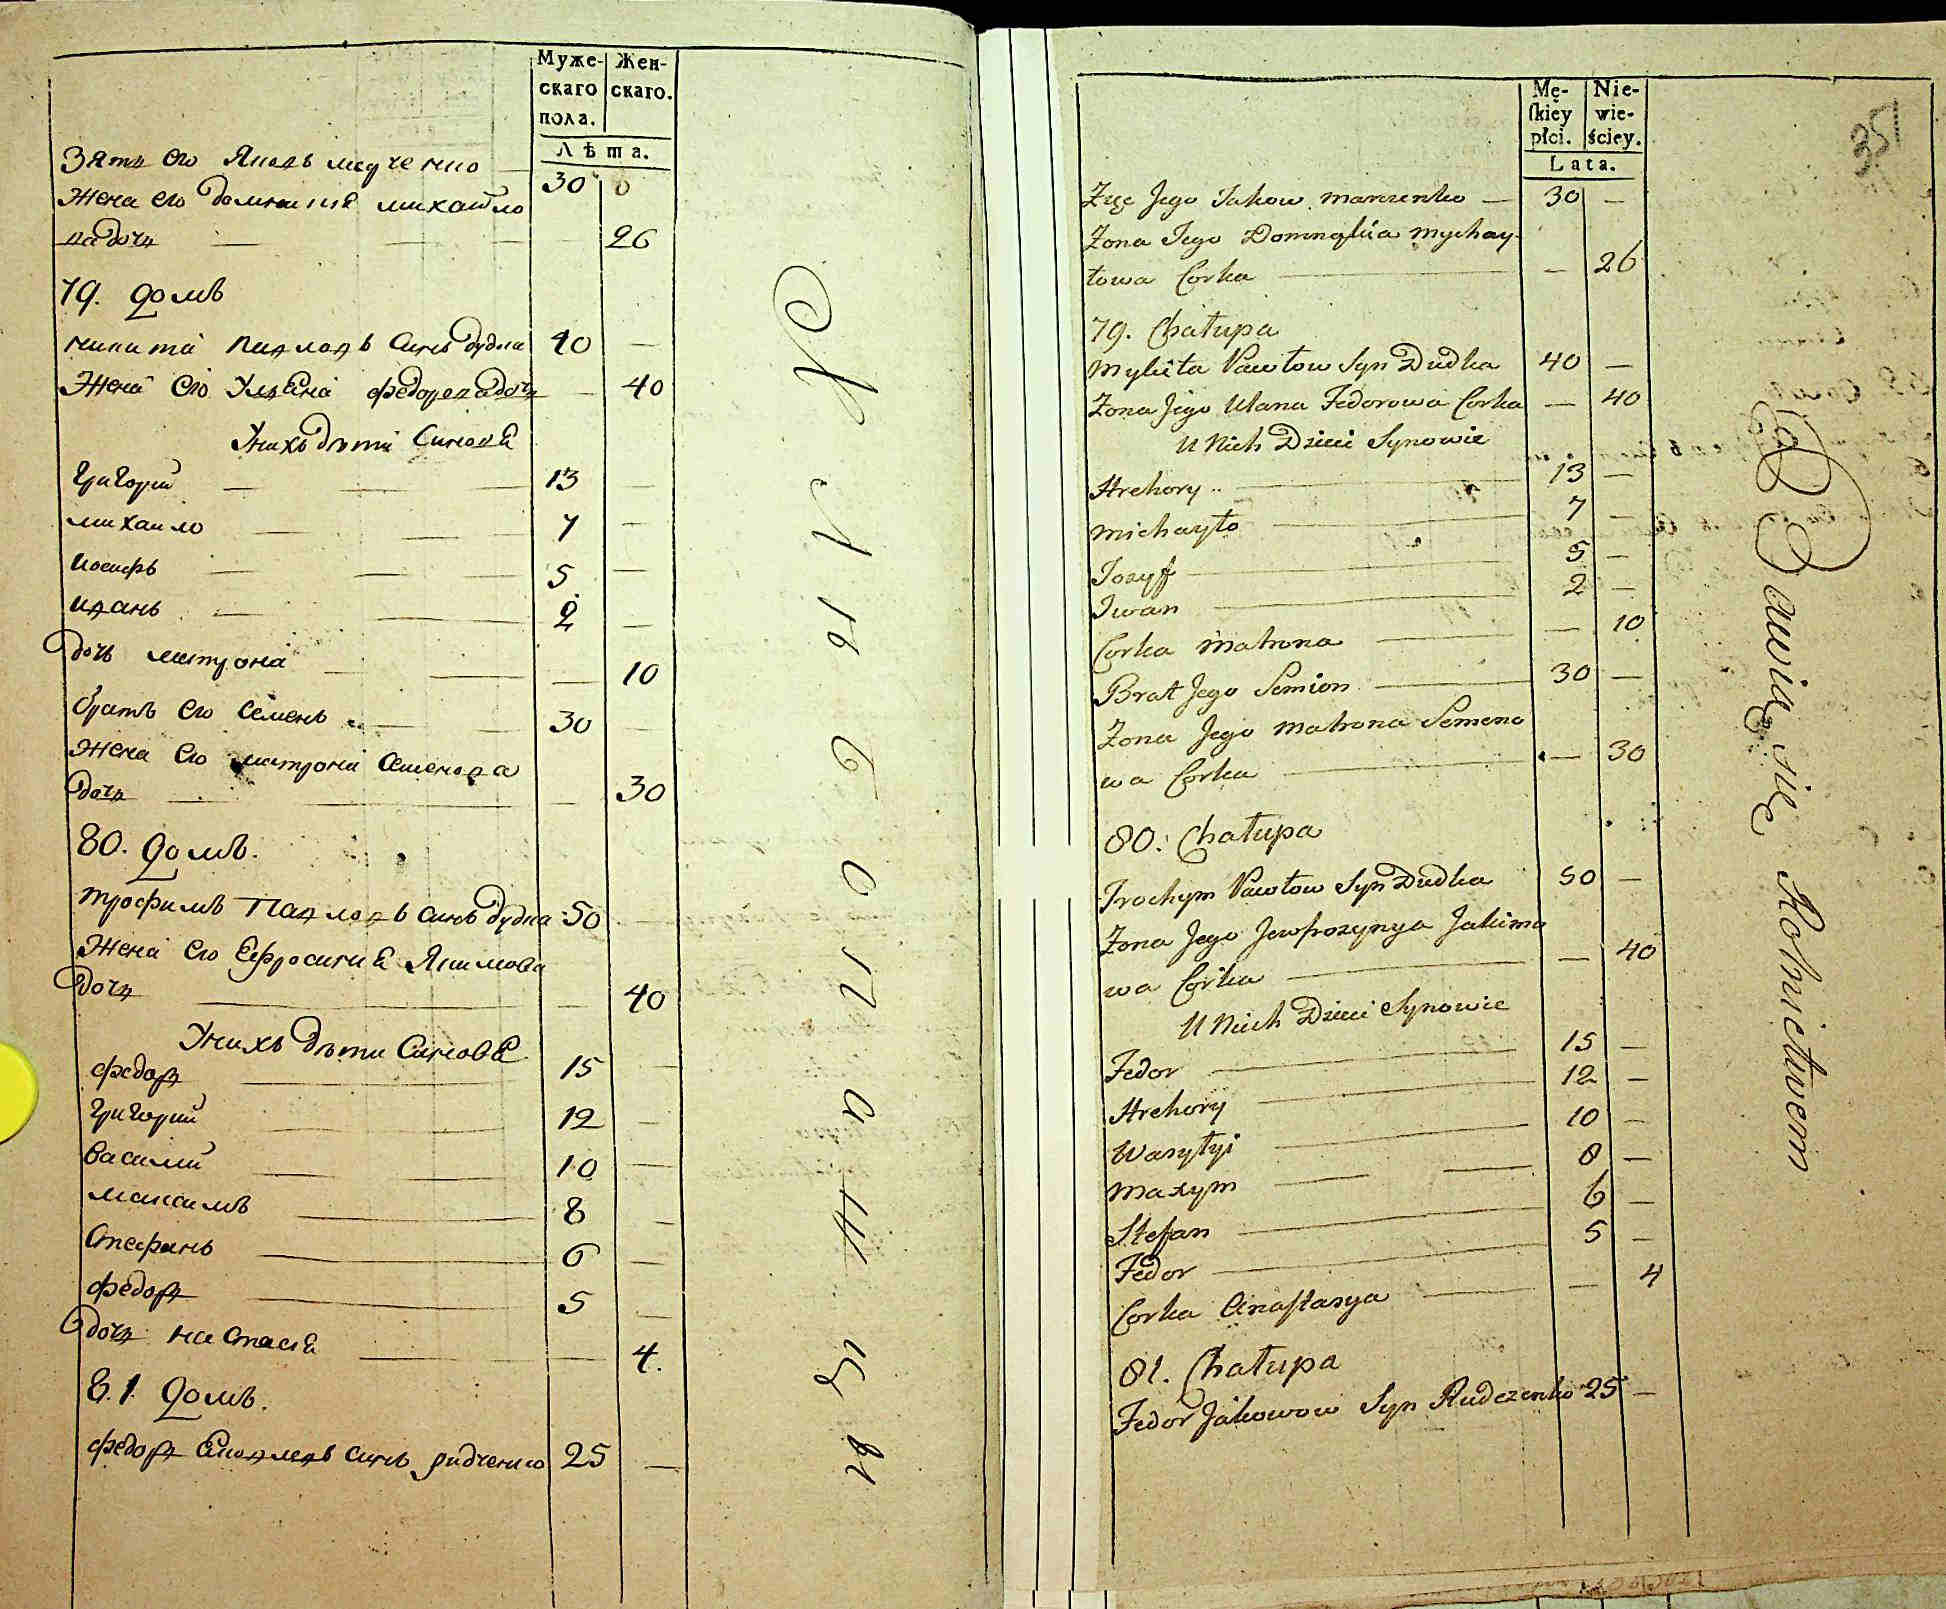 Муже-
скаго
пола.
Жен-
скаго.
Лѣта.
Зять его Яковъ марченко — 30
Жена его домникія михайло
ва дочь — 26
79. домъ
микита Павловъ Синъ дудка 40 —
Жена его Ульяна федорова дочь — 40
У нихъ дѣти Синовя
Григорий — 13 —
михаило — 7 —
иосифъ — 5 —
иванъ — 2 —
дочь матрона — 10
братъ его Семенъ — 30 —
Жена его матрона Семенова
дочь — 30
80. домъ.
трофимъ Павловъ синъ дудка 50 —
Жена его Ефросиния Якимова
дочь — 40
У нихъ дѣти Синовя
федоръ — 15 —
Григорий — 12 —
Василий — 10 —
максимъ — 8 —
Стефанъ — 6 —
федоръ — 5 —
дочь настасия — 4.
81. домъ.
федоръ Яковлевъ синъ рудченко 25 —
Mę-
ſkiey
płci.
Nie-
wie-
ściey.
Lata.
351
Zięc Jego Jakow Marczenko — 30 —
Zona Jego Domnikia Mychay-
łowa Corka — 26
79. Chałupa
Mykita Pawłow Syn Dudka 40 —
Zona Jego Ulana Fedorowa Corka — 40
U Nich Dzieci Synowie
Hrehory — 13 —
Michayło — 7 —
Jozyf — 5 —
Jwan — 2 —
Corka Matrona — 10
Brat Jego Semion — 30 —
Zona Jego Matrona Semeno
wa Corka — 30
80. Chałupa
Trochym Pawłow Syn Dudka 50 —
Zona Jego Jewfrozynya Jakimo
wa Corka — 40
U Nich Dzieci Synowie
Fedor — 15 —
Hrehory — 12 —
Wasyłyi — 10 —
Maxym — 8 —
Stefan — 6 —
Fedor — 5 —
Corka Anastasya — 4
81. Chałupa
Fedor Jakowow Syn Rudczenko 25 —
Bawią się Rolnictwem